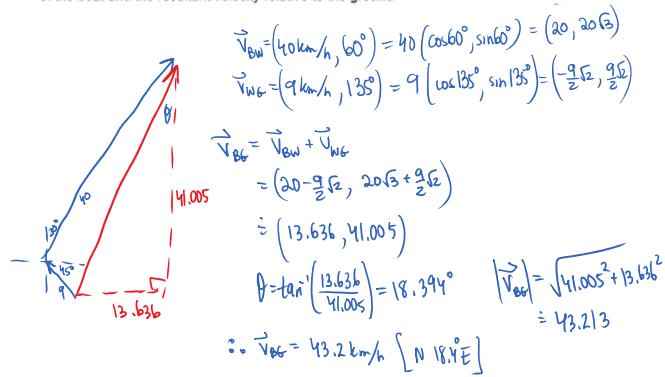 V⃗_BW = (40 km/h, 60°) = 40 (cos60°, sin60°) = (20, 20√3)
V⃗_WG = (9 km/h, 135°) = 9 (cos135°, sin135°) = (-9/2 √2, 9/2 √2)
V⃗_BG = V⃗_BW + V⃗_WG
= (20 - 9/2 √2, 20√3 + 9/2 √2)
≐ (13.636, 41.005)
θ = tan⁻¹(13.636/41.005) = 18.394°
|V⃗_BG| = √(41.005² + 13.636²)
≐ 43.213
∴ V⃗_BG = 43.2 km/h [N 18.4° E]
θ
40
41.005
30°
45°
9
13.636